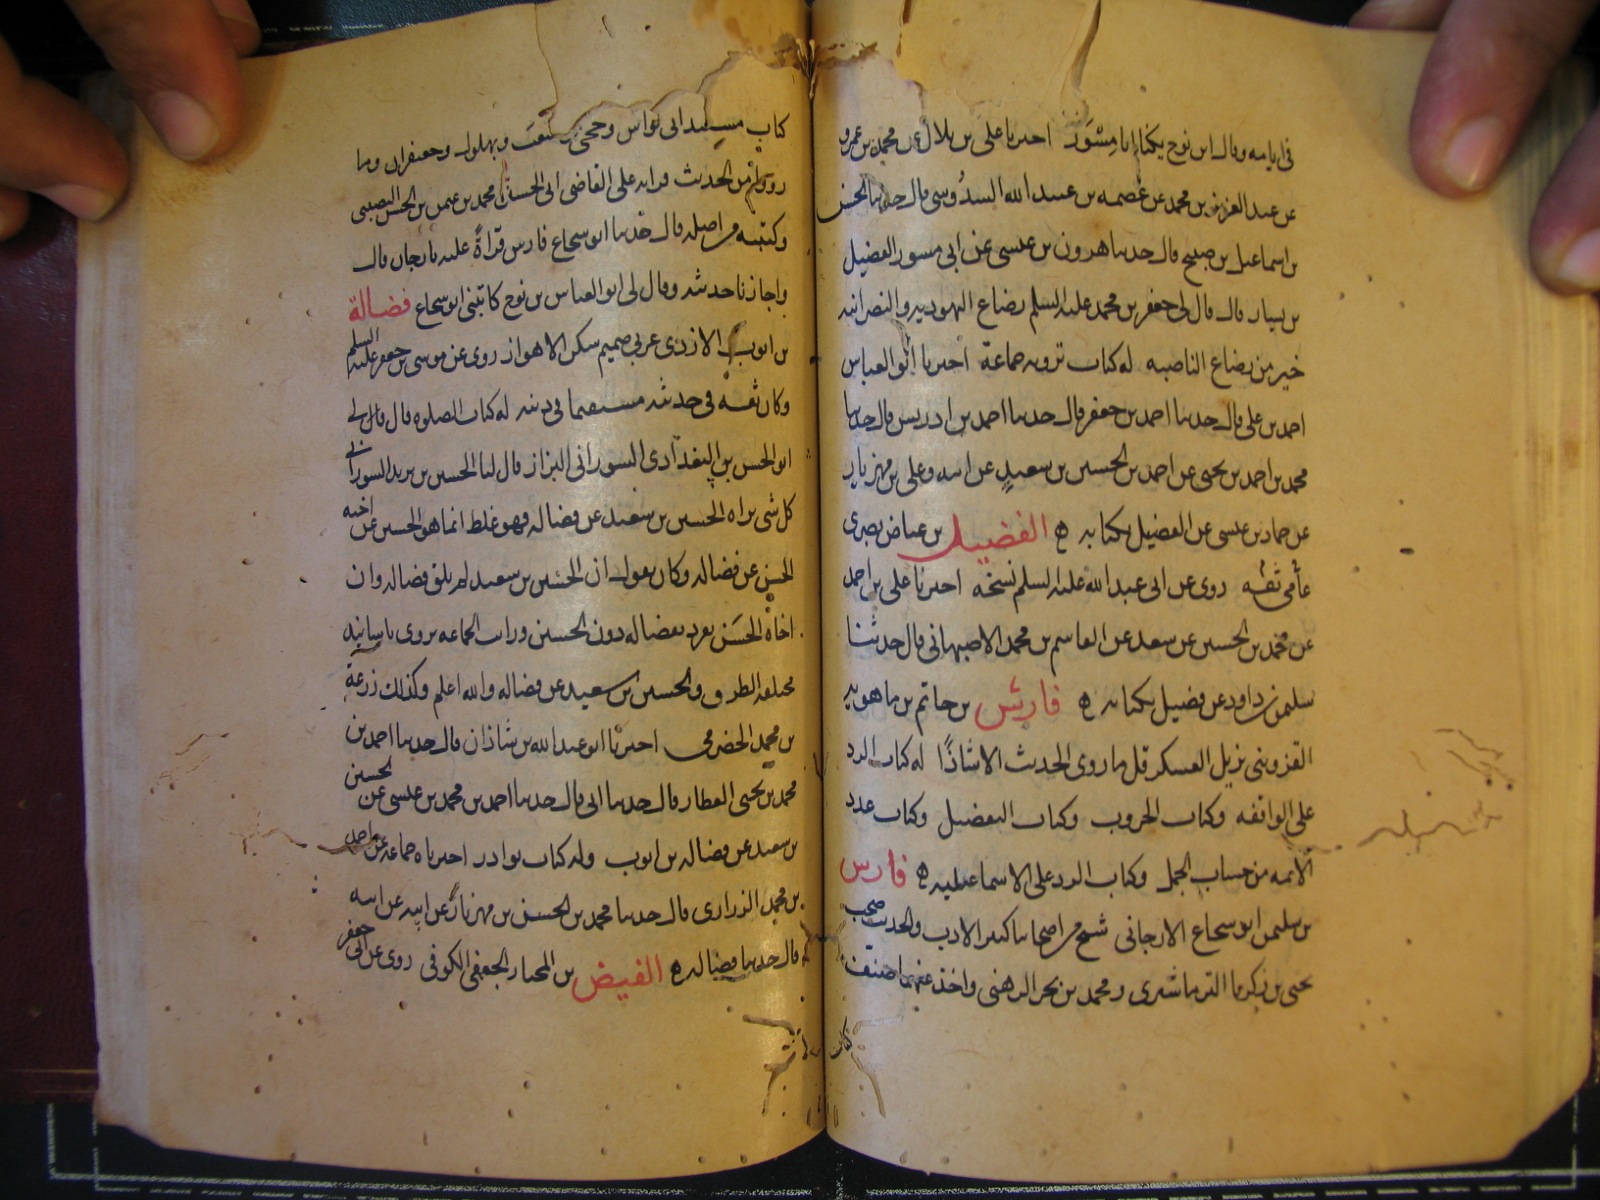 في ايامه وقال ابن نوح يكنى ابا مسور اخبرنا علي بن بلال عن محمد بن عمرو
عن عبد العزيز بن محمد عن عصمه بن عبيد الله السدوسي قال حدثنا الحسن
بن اسماعيل بن صبيح قال حدثنا هرون بن عيسى عن ابي مسور الفضيل
بن يسار قال قال لي جعفر بن محمد عليه السلم رضاع اليهوديه والنصرانيه
خير من رضاع الناصبه له كتاب ترويه جماعة اخبرنا ابو العباس
احمد بن علي قال حدثنا احمد بن جعفر قال حدثنا احمد بن ادريس قال حدثنا
محمد بن احمد بن يحيى عن احمد بن الحسين بن سعيد عن ابيه وعلي بن مهزيار
عن حماد بن عيسى عن الفضيل بكتابه ه الفضيل بن عياض بصري
عامي ثقه روى عن ابي عبد الله عليه السلم نسخه اخبرنا علي بن احمد
عن محمد بن الحسين عن سعد عن القاسم بن محمد الاصبهاني قال حدثنا
سليمن بن داود عن فضيل بكتابه ه فارس بن حاتم بن ماهويه
القزويني نزيل العسكر قل ما روى الحديث الا شاذا له كتاب الرد
على الواقفه وكتاب الحروب وكتاب التفضيل وكتاب عدد
الائمه من حساب الجمل وكتاب الرد على الاسماعيليه ه فارس
بن سليمن ابو سجاع الارجاني شيخ من اصحابنا كثير الادب والحديث صحب
يحيى بن زكريا الترماشيري ومحمد بن بحر الرهني واخذ عنهما صنف
كتاب
كتاب مسند ابي نواس وحجى واشعب وبهلول وجعيفران وما
رووا من الحديث قراته على القاضي ابي الحسين محمد بن عثمن بن الحسن النصيبي
وكتبته من اصله قال حدثنا ابو سجاع فارس قراةً عليه بارجان قال
واجازنا حديثه وقال لي ابو العباس بن نوح كاتبني ابو سجاع فضالة
بن ايوب الازدي عربي صميم سكن الاهواز روى عن موسى بن جعفر عليه السلم
وكان ثقه في حديثه مستقيما في دينه له كتاب الصلوه قال قال لي
ابو الحسن بن البغدادي السوراني البزاز قال لنا الحسين بن يزيد السوراني
كل شي يراه الحسين بن سعيد عن فضاله فهو غلط انما هو الحسين عن اخيه
الحسن عن فضاله وكان يقول ان الحسين بن سعيد لم يلق فضاله وان
اخاه الحسن تفرد بفضاله دون الحسين ورايت الجماعه تروى باسانيد
مختلفه الطرق والحسين بن سعيد عن فضاله والله اعلم وكذلك زرعة
بن محمد الحضرمي اخبرنا ابو عبد الله بن شاذان قال حدثنا احمد بن
محمد بن يحيى العطار قال حدثنا ابي قال حدثنا احمد بن محمد بن عيسى عن الحسين
بن سعيد عن فضاله بن ايوب وله كتاب نوادر اخبرناه جماعه عن احمد
بن محمد الزراري قال حدثنا محمد بن الحسن بن مهزيار عن ابيه عن ابيه
قال حدثنا فضاله ه الفيض بن المختار الجعفي الكوفي روى عن ابي جعفر